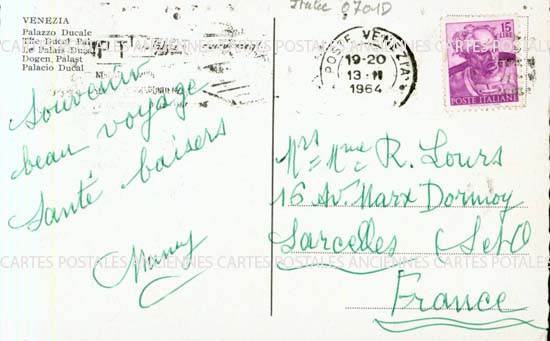 Italie 070 1D
VENEZIA
Palazzo Ducale
The Ducal Pal
Le Palais Duc
Dogen, Palast
Palacio Ducal
POSTE VENEZIA
19-20
13·II
1964
15
LIRE
POSTE ITALIANE
Souvenir
beau voyage
Santé baisers
Mrs = Mme R. Lours
16 Av. Marx Dormoy
Sarcelles (S et O
France
CARTES POSTALES ANCIENNES CARTES POSTALES ANCIENNES CARTES POSTALES
CARTES POSTALES ANCIENNES CARTES POSTALES ANCIENNES CARTES POSTALES